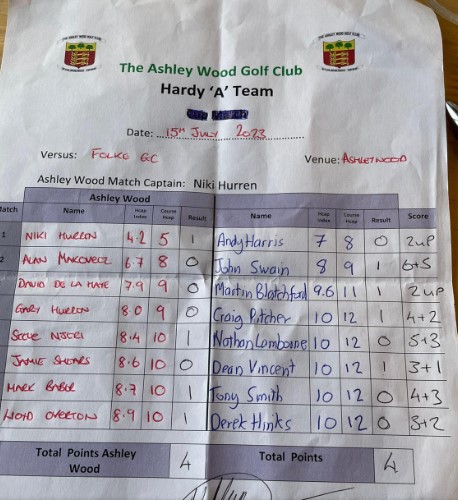 The Ashley Wood Golf Club
Hardy 'A' Team
Date: 15TH JULY 2023
Versus: FOLKE GC Venue: ASHLEYWOOD
Ashley Wood Match Captain: Niki Hurren
Ashley Wood
Match Name Hcap Index Course Hcap Result Name Hcap Index Course Hcap Result Score
1 NIKI HURREN 4.2 5 1 Andy Harris 7 8 0 2UP
2 ALAN MAKOVECZ 6.7 8 0 John Swain 8 9 1 6+5
DAVID DE LA HAYE 7.9 9 0 Martin Blatchford 9.6 11 1 2UP
GARY HURREN 8.0 9 0 Craig Pitcher 10 12 1 4+2
8.4 10 1 Nathan Lambourne 10 12 0 5+3
JAMIE 8.6 10 0 Dean Vincent 10 12 1 3+1
MARK 8.7 10 1 Tony Smith 10 12 0 4+3
LLOYD OVERTON 8.9 10 1 Derek Hinks 10 12 0 3+2
Total Points Ashley Wood 4 Total Points 4